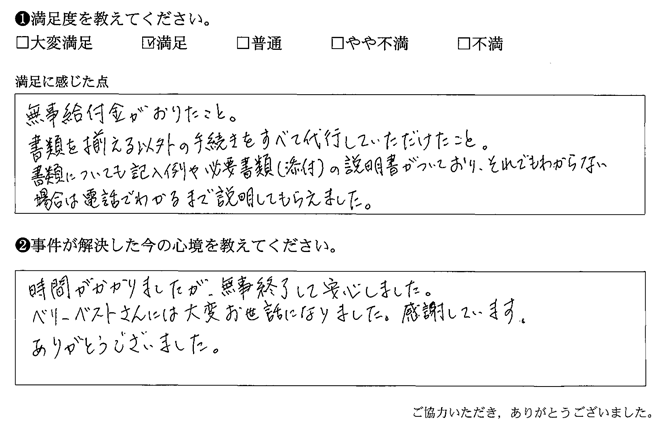 ❶満足度を教えてください。
□大変満足 ☑満足 □普通 □やや不満 □不満
満足に感じた点
無事給付金がおりたこと。
書類を揃える以外の手続きをすべて代行していただけたこと。
書類についても記入例や必要書類(添付)の説明書がついており、それでもわからない
場合は電話でわかるまで説明してもらえました。
❷事件が解決した今の心境を教えてください。
時間がかかりましたが、無事終了して安心しました。
ベリーベストさんには大変お世話になりました。感謝しています。
ありがとうございました。
ご協力いただき，ありがとうございました。